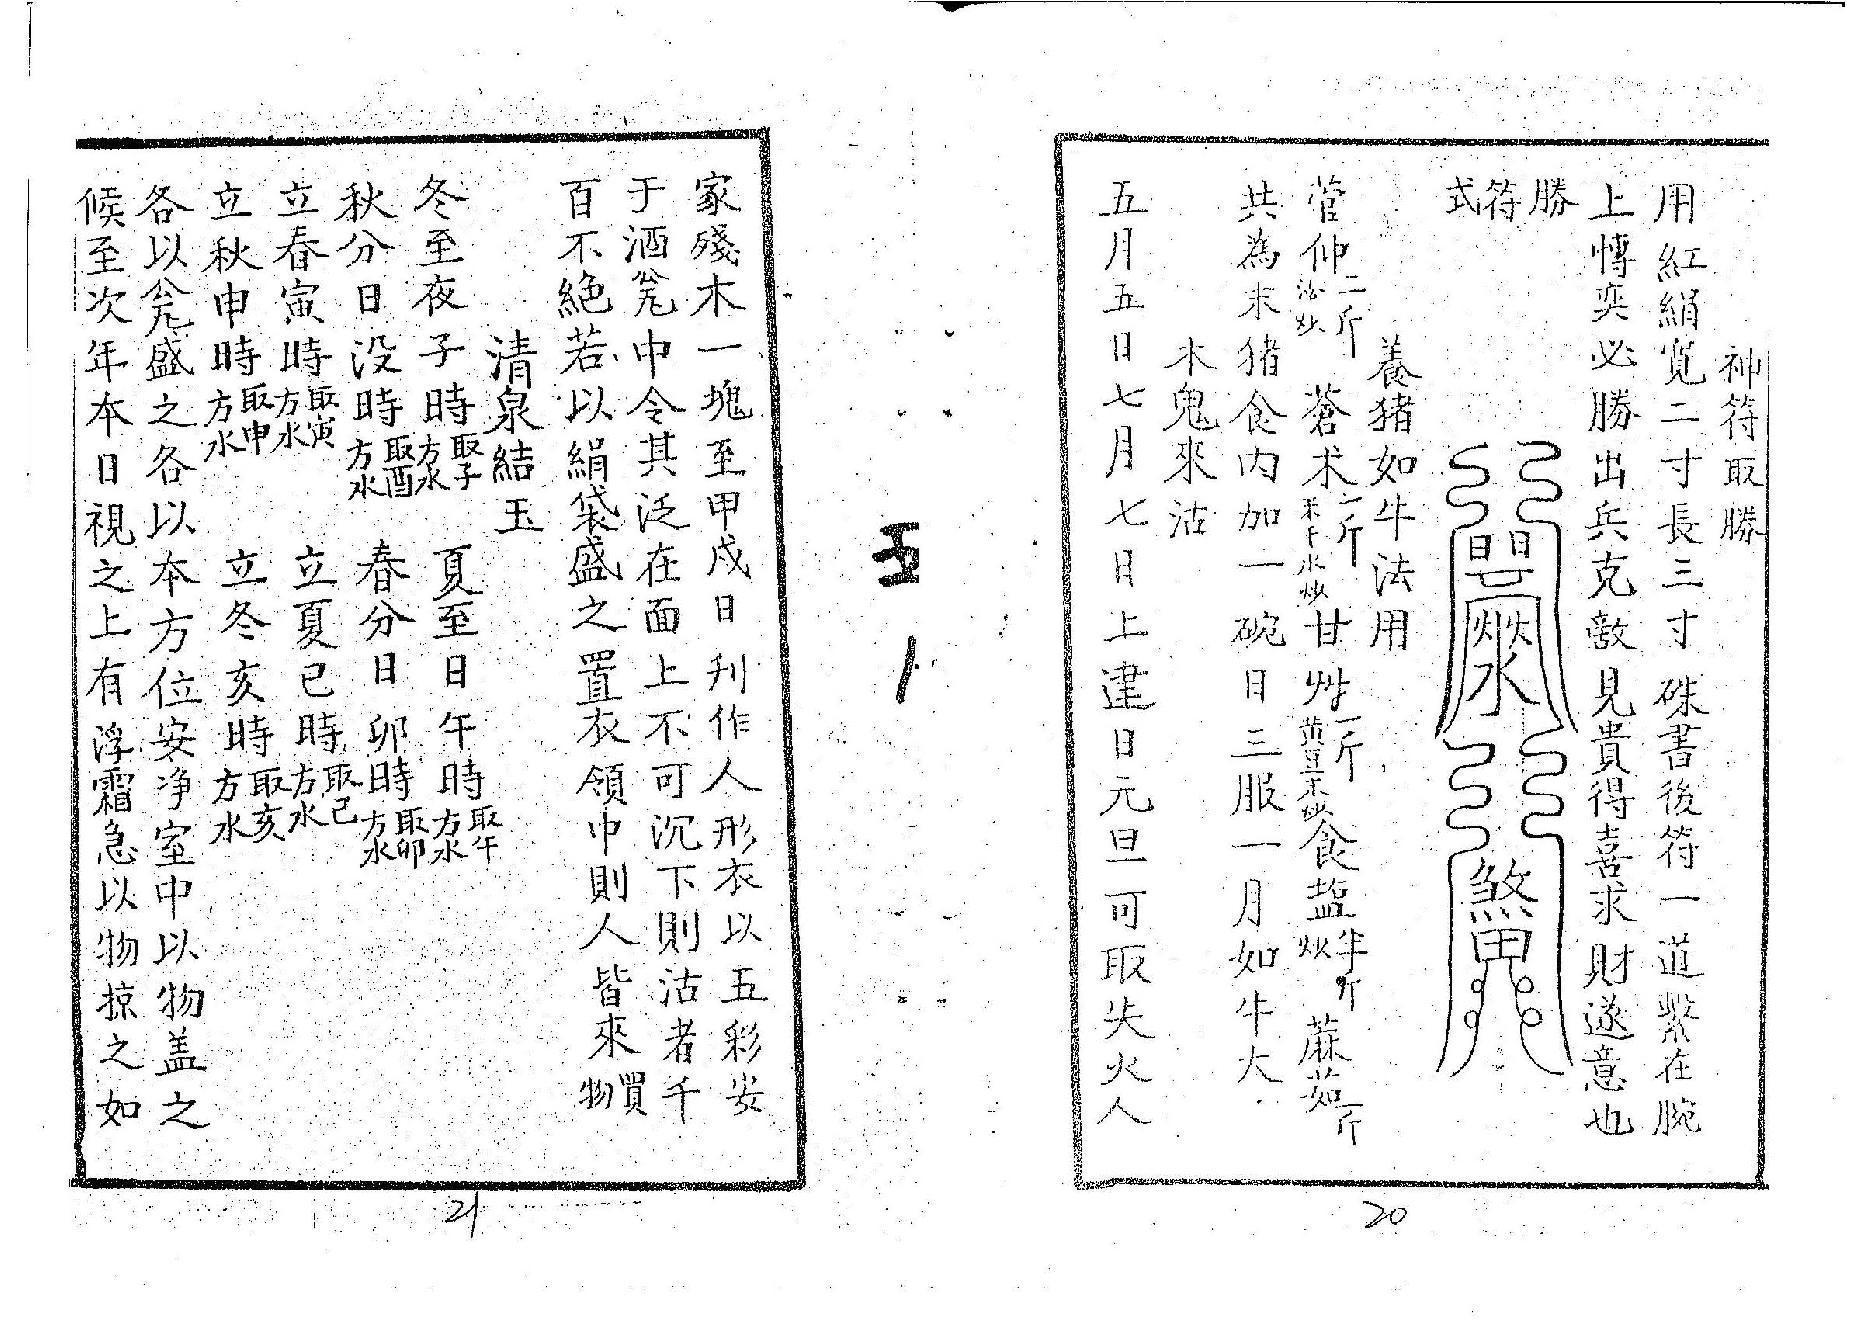 神符取勝
用紅絹寬二寸長三寸硃書後符一道繫在腕
上博奕必勝出兵克敵見貴得喜求財遂意也
勝符式
養猪如牛法用
菅仲二斤沙炒蒼术二斤米卜水炒甘艸一斤黄豆末炒食盐半斤炒蔴茹一斤
共為末猪食内加一碗日三服一月如牛大
木鬼來沽
五月五日七月七日上建日元旦可取失火人
20
家殘木一塊至甲戍日刋作人形衣以五彩安
于酒甕中令其泛在面上不可沉下則沽者千
百不絶若以絹袋盛之置衣領巾則人皆來買物
清泉結玉
冬至夜子時取子方水 夏至日午時取午方水
秋分日没時取酉方水 春分日卯時取卯方水
立春寅時取寅方水 立夏已時取已方水
立秋申時取申方水 立冬亥時取亥方水
各以甕盛之各以本方位安净室中以物盖之
候至次年本日視之上有浮霜急以物掠之如
21